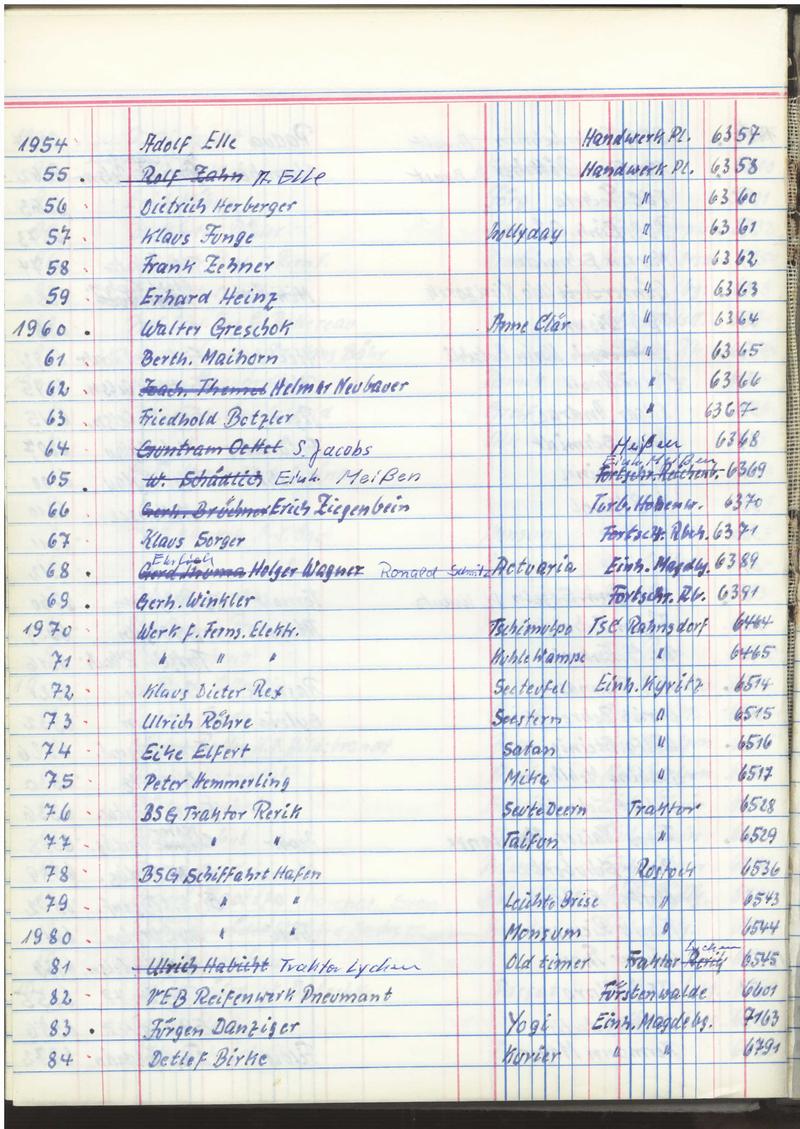 1954 Adolf Elle Handwerk Pl. 6357
55 . Rolf Zahn A. Elle Handwerk Pl. 6358
56 Dietrich Herberger " 6360
57 Klaus Junge Hollyday " 6361
58 Frank Zehner " 6362
59 Erhard Heinz " 6363
1960 . Walter Greschok Anne Clär " 6364
61 Berth. Maihorn " 6365
62 Joach. Themel Helmar Neubauer " 6366
63 Friedhold Botzler " 6367
64 Guntram Oettel S. Jacobs Meißen 6368
65 . W. Schädlich Einh. Meißen Einh. Meißen Fortschr. Reichenb. 6369
66 Gerh. Brückner Erich Ziegenbein Turb. Hohenw. 6370
67 Klaus Sorger Fortschr. Rbch. 6371
68 . Ehrlich Gerd Thoma Holger Wagner Ronald Schmitz Actuaria Einh. Magdbg. 6389
69 . Gerh. Winkler Fortschr. Rb. 6391
1970 Werk f. Ferns. Elektr. Tschimulpo TSC Rahnsdorf 6464
71 " " " Kuhle Wampe " 6465
72 Klaus Dieter Rex Seeteufel Einh. Kyritz 6514
73 Ulrich Röhre Seestern " 6515
74 Eike Elfert Satan " 6516
75 Peter Hemmerling Mike " 6517
76 BSG Traktor Rerik Seute Deern Traktor 6528
77 " " Taifun " 6529
78 BSG Schiffahrt Hafen Rostock 6536
79 " " Leichte Brise " 6543
1980 " " Monsum " 6544
81 Ulrich Habicht Traktor Lychen Old timer Traktor Rerik Lychen 6545
82 VEB Reifenwerk Pneumant Fürstenwalde 6601
83 . Jürgen Danziger Yogi Einh. Magdebg. 7163
84 Detlef Birke Kurier " " 6791